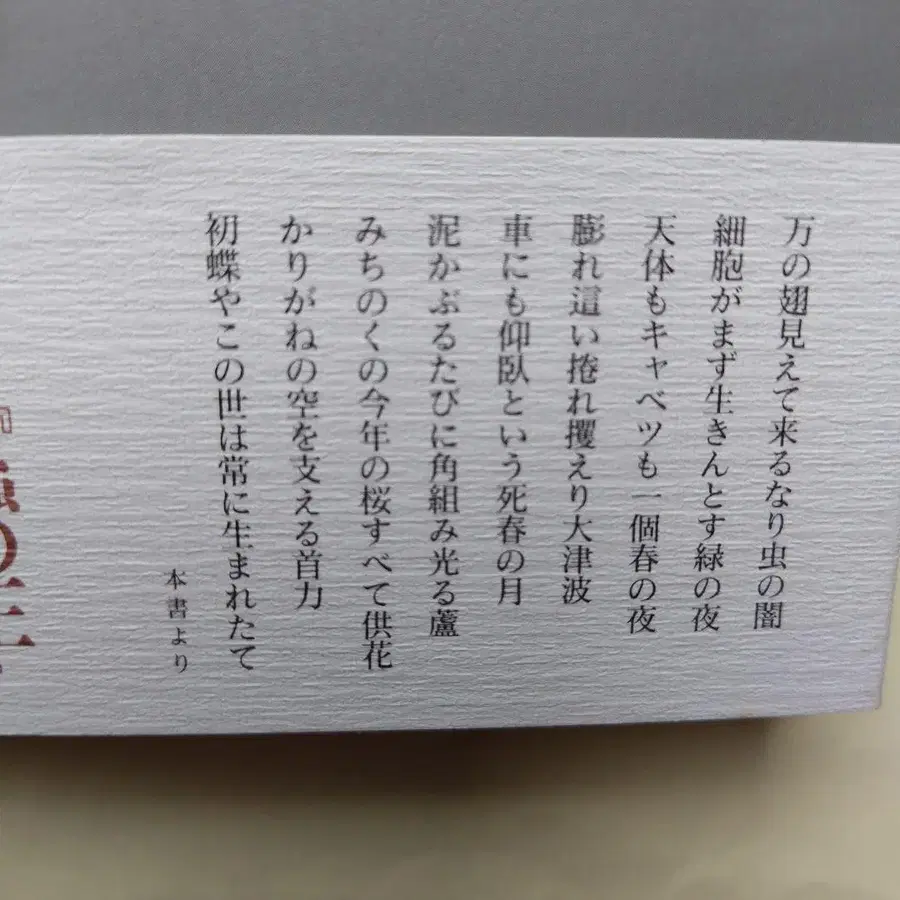 万の翅見えて来るなり虫の闇
細胞がまず生きんとす緑の夜
天体もキャベツも一個春の夜
膨れ這い捲れ攫えり大津波
車にも仰臥という死春の月
泥かぶるたびに角組み光る蘆
みちのくの今年の桜すべて供花
かりがねの空を支える首力
初蝶やこの世は常に生まれたて
本書より